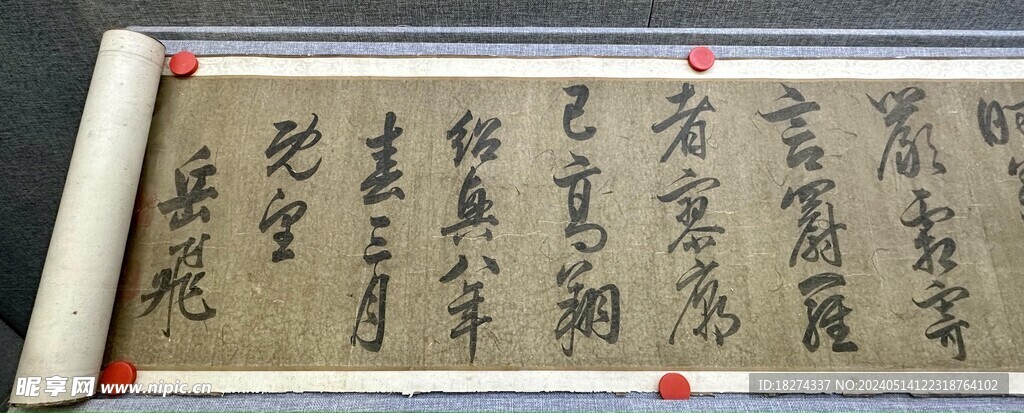 時
嚴霜寄
言罻羅
者寥廓
已高翔
紹興八年
春三月
既望
岳飛
昵享网 www.nipic.cn
ID:18274337 NO:20240514122318764102